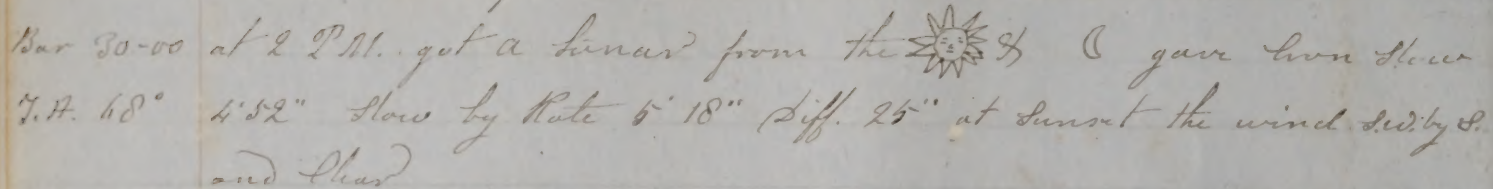 Bar 30-00 at 2 P.M. got a Lunar from the ☀ & ☾ gave Cron Slow
T.A. 68° 4' 52" Slow by Rate 5' 18" Diff. 25" at Sunset the wind S.W. by S.
and Clear